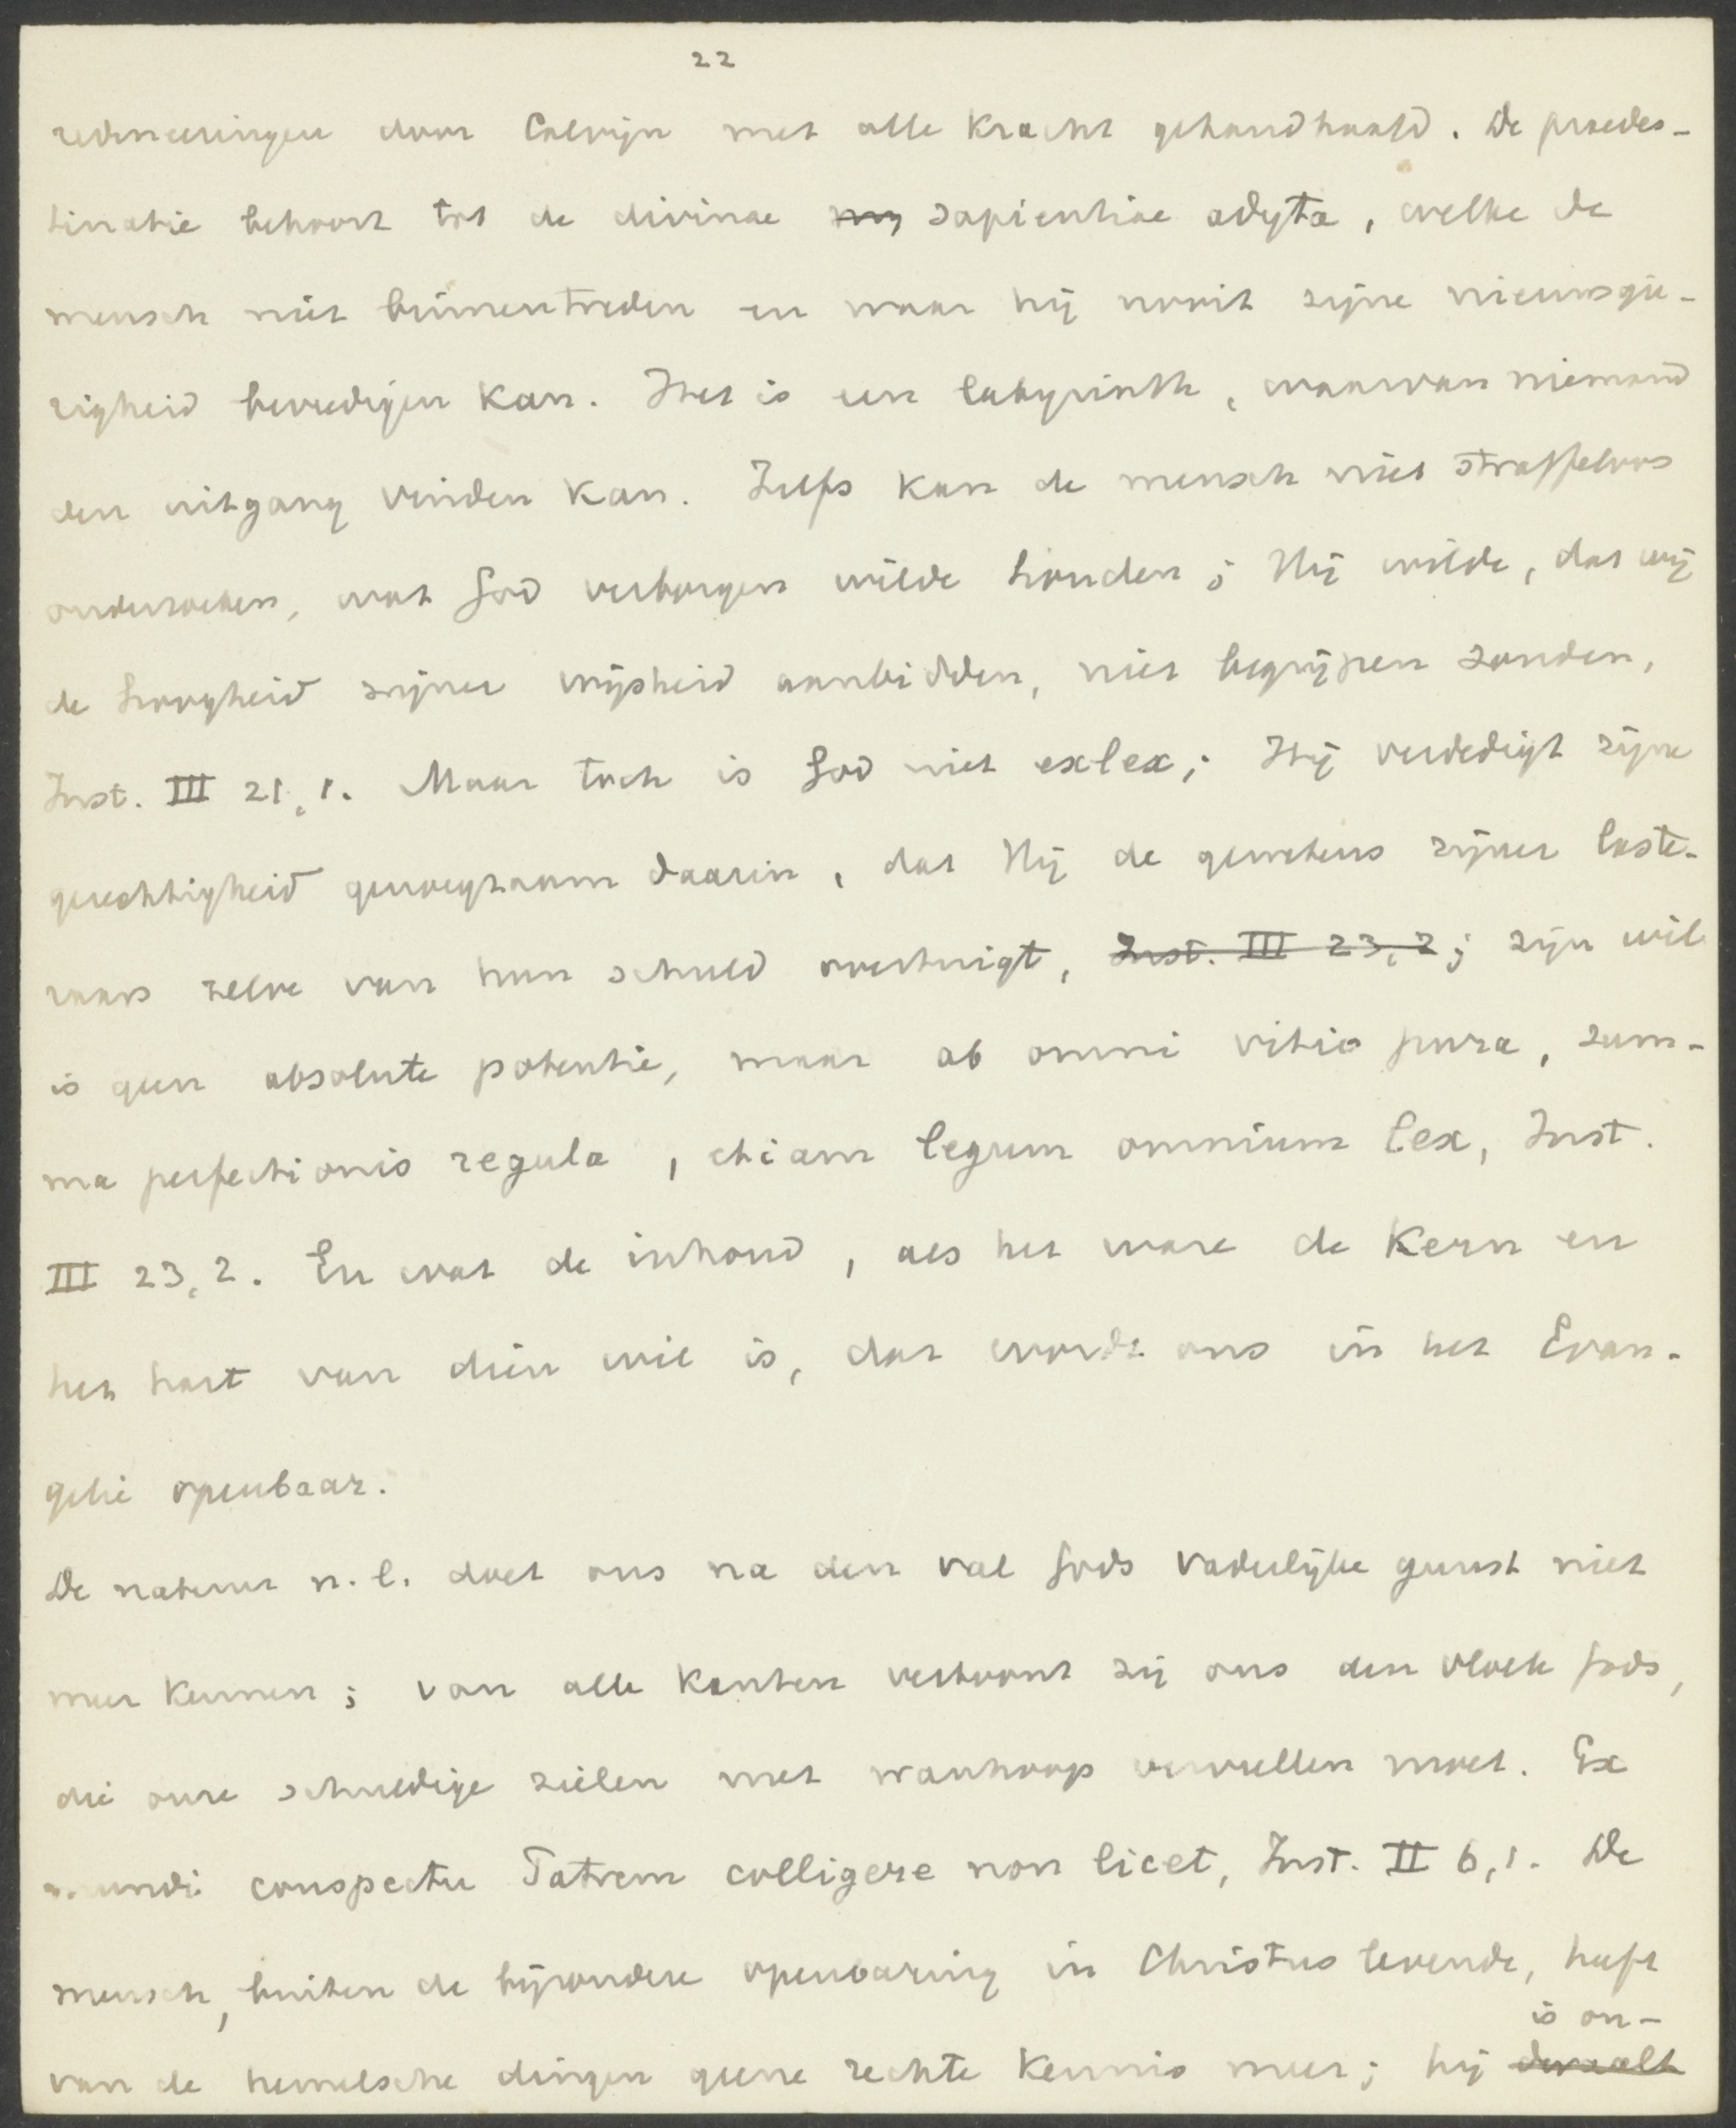 22
redeneeringen door Calvijn met alle kracht gehandhaafd. De praedes-
tinatie behoort tot de divinae sapientiae adyta, welke de
mensch niet binnentreden en waar hij nooit zijne nieuwsgie-
righeid bevredigen kan. Het is een labyrinth, waarvan niemand
den uitgang vinden kan. Zelfs kan de mensch niet straffeloos
onderzoeken, wat God verborgen wilde houden; Hij wilde, dat wij
de hoogheid zijner wijsheid aanbidden, niet begrijpen zouden,
Inst. III 21,1. Maar toch is God niet exlex; Hij verdedigt zijne
gerechtigheid genoegzaam daarin, dat Hij de gewetens zijner laste-
raars zelve van hun schuld overtuigt, Inst. III 23,2; zijn wil
is geen absolute potentie, maar ab omni vitio pura, sum-
ma perfectionis regula, etiam legum omnium lex, Inst.
III 23,2. En wat de inhoud, als het ware de kern en
het hart van dien wil is, dat wordt ons in het Evan-
gelie openbaar.
De natuur n.l. doet ons na den val Gods vaderlijke gunst niet
meer kennen; van alle kanten vertoont zij ons den vloek Gods,
die onze schuldige zielen met wanhoop vervullen moet. Ex
mundi conspectu Patrem colligere non licet, Inst. II 6,1. De
mensch, buiten de bijzondere openbaring in Christus levende, heeft
is on-
van de hemelsche dingen geene rechte kennis meer; hij dwaalt